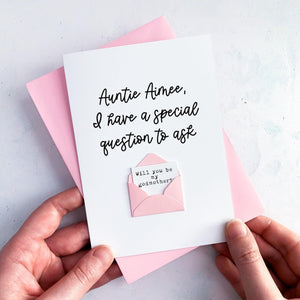 Auntie Aimee,
I have a special
question to ask
Will you be
my
godmother?